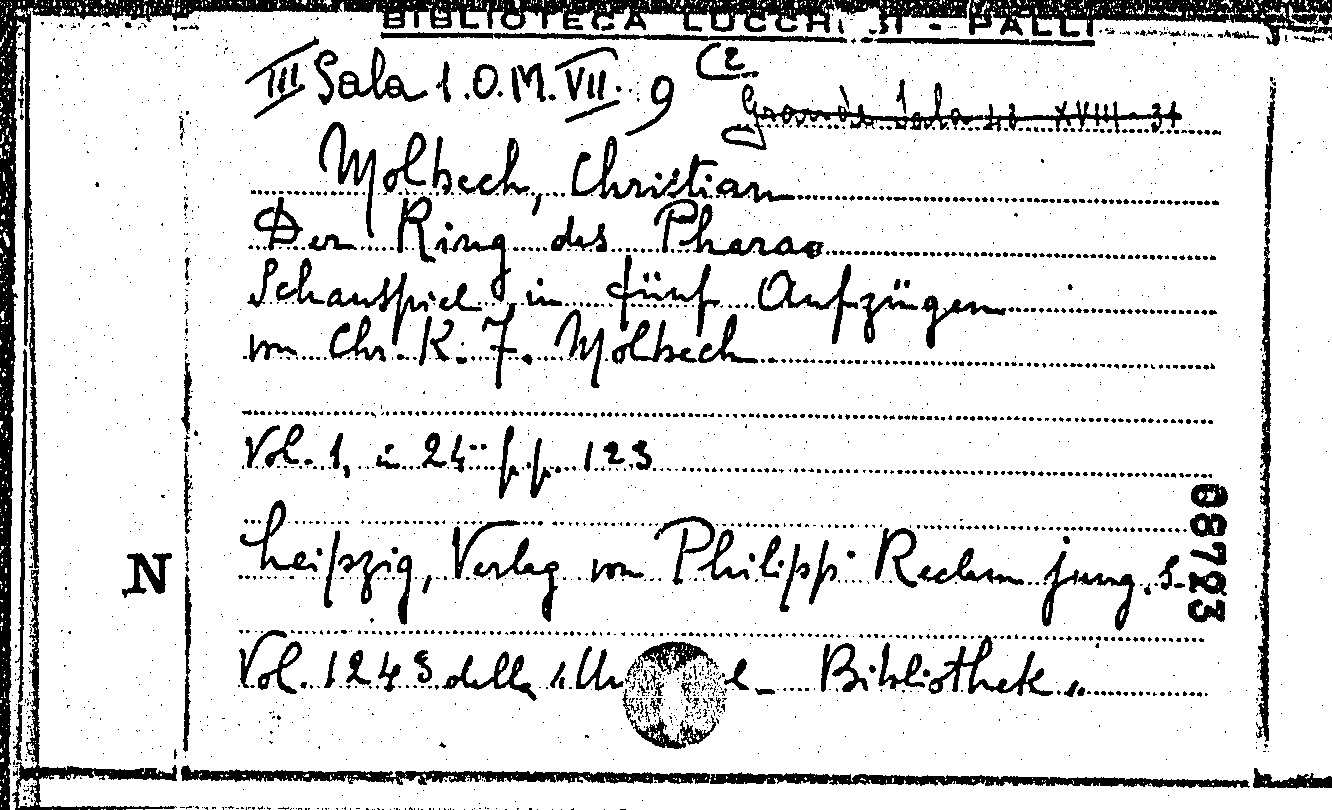 BIBLIOTECA LUCCHESI - PALLI
III Sala 1.O.M. VII. 9 (2
Grande Sala 48 XVIII - 31
Molbech, Christian
Der Ring des Pharao
Schauspiel in fünf Aufzügen
von Chr. K. F. Molbech
Vol. 1, in 24° p.p. 123
Leipzig, Verlag von Philipp Reclam jung. S.
Vol. 1243 della "Un l- Bibliothek "
N
08723